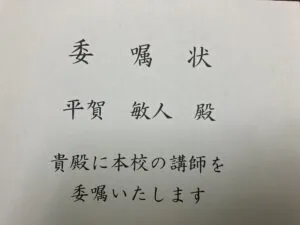 委嘱状
平賀 敏人 殿
貴殿に本校の講師を
委嘱いたします